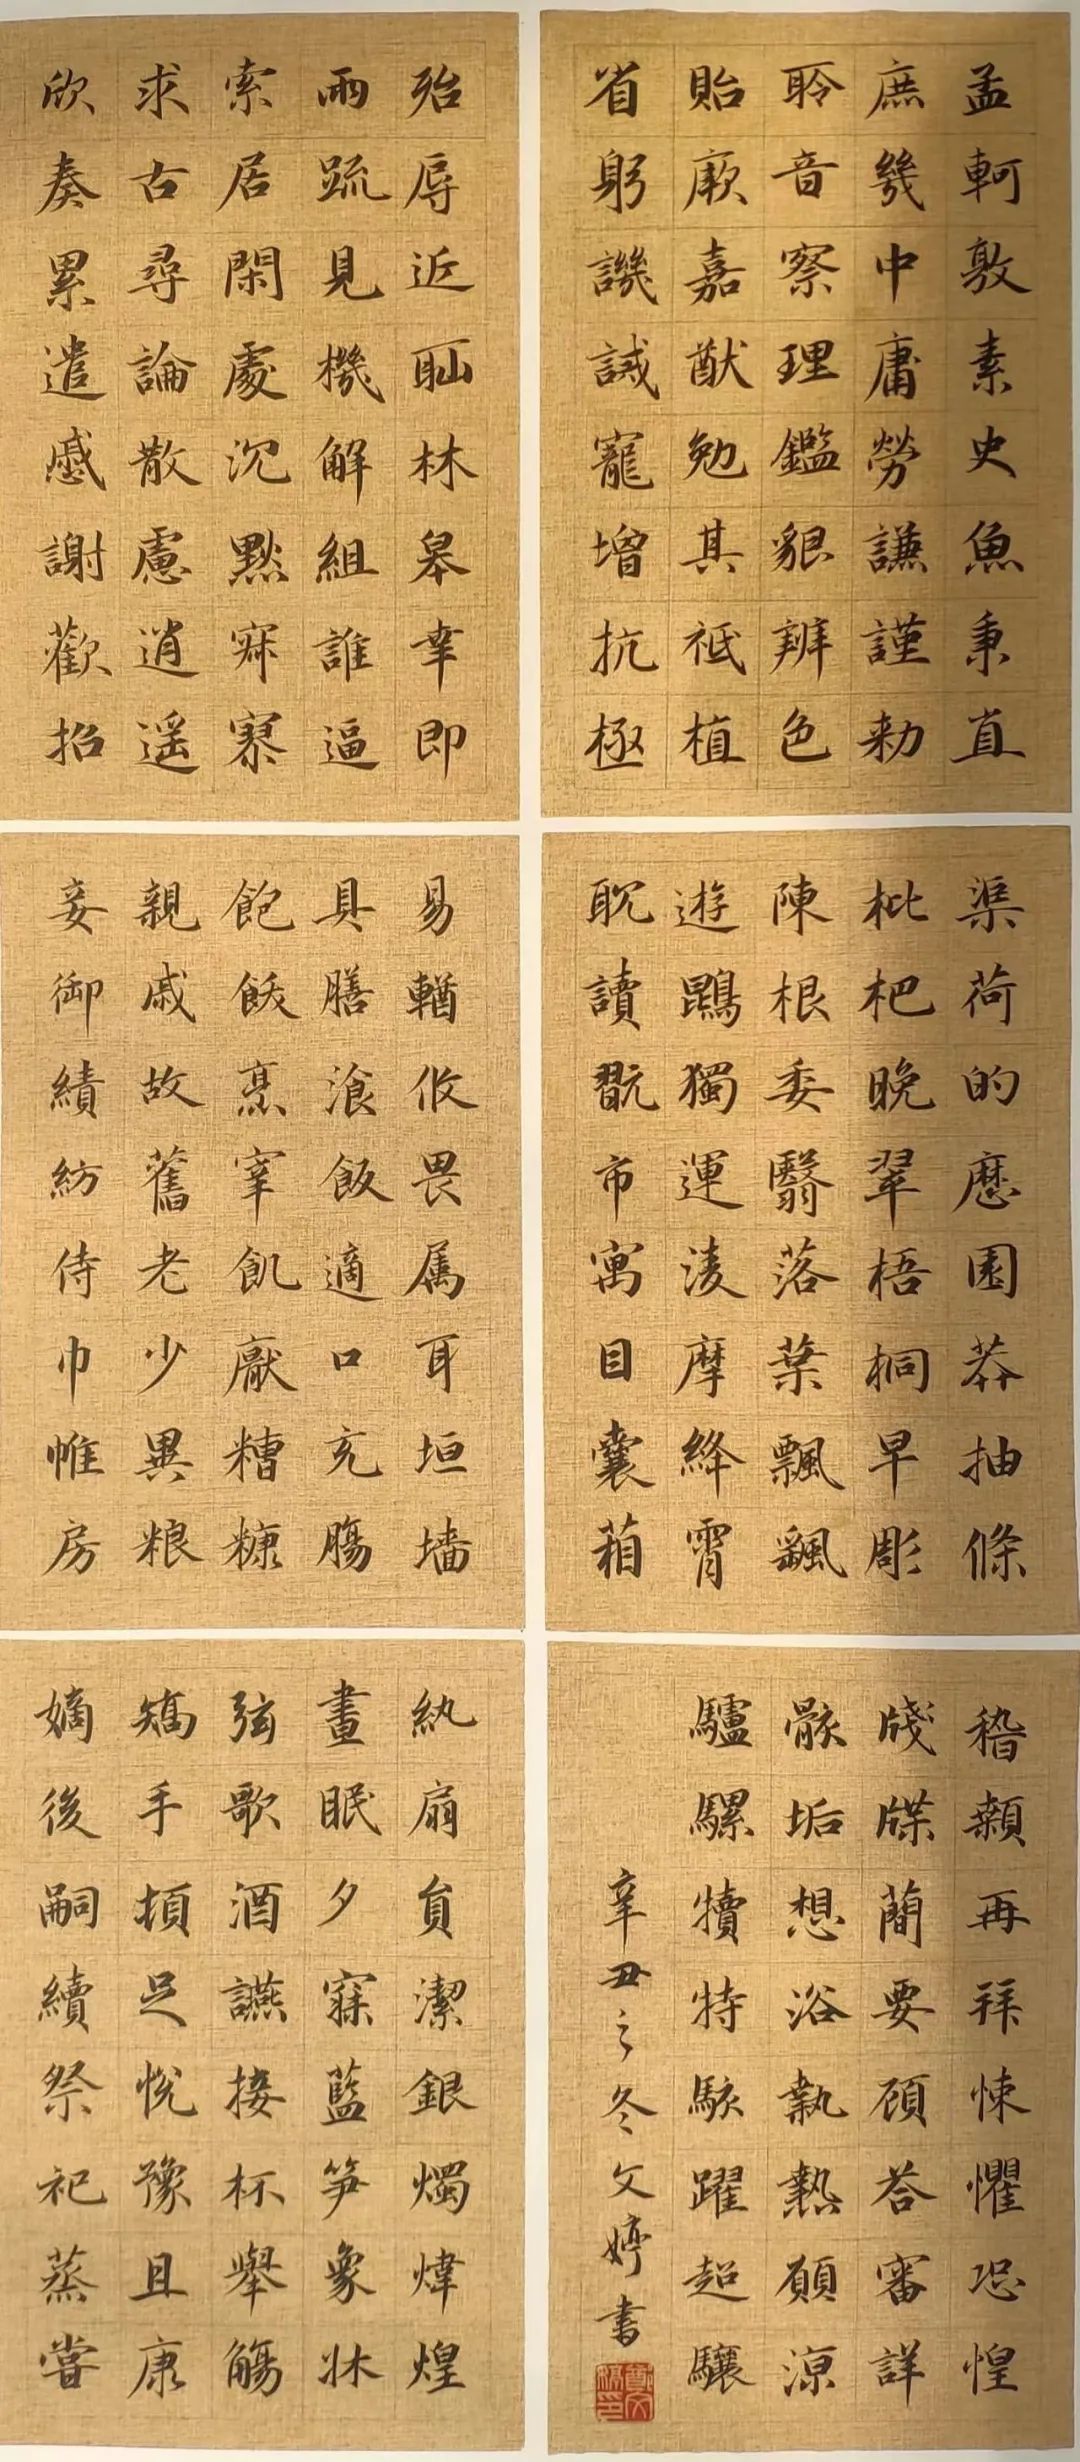 孟軻敦素史魚秉直
庶幾中庸勞謙謹勅
聆音察理鑑貌辨色
貽厥嘉猷勉其祗植
省躬譏誡寵增抗極
殆辱近恥林皋幸即
兩疏見機解組誰逼
索居閑處沉默寂寥
求古尋論散慮逍遥
欣奏累遣慼謝歡招
渠荷的歷園莽抽條
枇杷晚翠梧桐早彫
陳根委翳落葉飄颻
遊鵾獨運淩摩絳霄
耽讀翫市寓目囊箱
易輶攸畏属耳垣墻
具膳飡飯適口充腸
飽飫烹宰飢厭糟糠
親戚故舊老少異粮
妾御績紡侍巾帷房
紈扇員潔銀燭煒煌
晝眠夕寐藍笋象牀
弦歌酒讌接杯舉觴
矯手頓足悅豫且康
嫡後嗣續祭祀蒸嘗
稽顙再拜悚懼恐惶
牋牒簡要顧荅審詳
骸垢想浴執熱願涼
驢騾犢特駭躍超驤
辛丑之冬文婷書